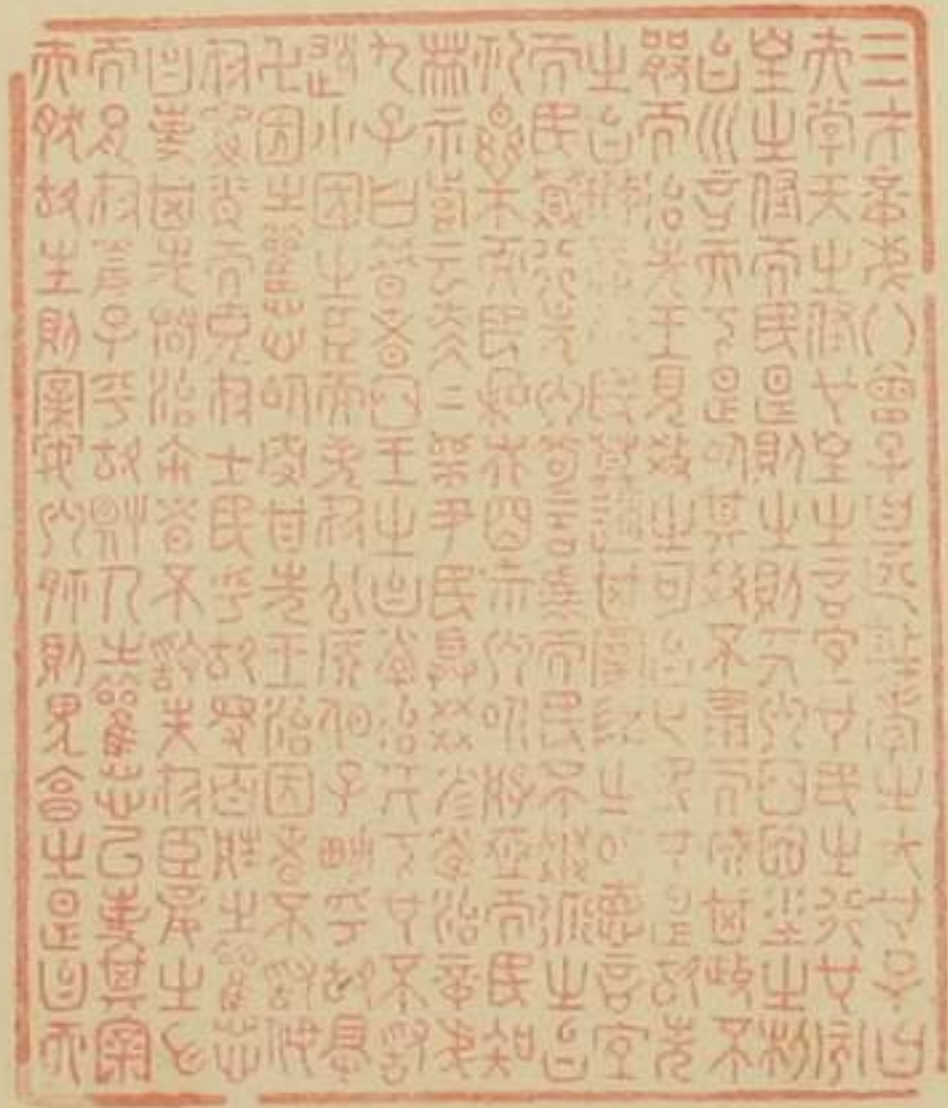 三才章第八曾子曰甚哉孝之大也子曰
夫孝天之經也地之誼也民之行也天
地之經而民是則之則天之明因地之利
以訓天下是以其教不肅而成其政不
嚴而治先王見教之可以化民也是故先
之以博愛而民莫遺其親陳之以德誼
而民興行先以敬讓而民不爭導之以
禮樂而民和睦示以好惡而民知
禁詩云赫赫師尹民具爾瞻孝治章第
九子曰昔者明王之以孝治天下也不敢
遺小國之臣而況於公侯伯子男乎故得
萬國之懽心以事其先王治國者不敢侮
於鰥寡而況於士民乎故得百姓之懽心
以事其先君治家者不敢失於臣妾之心
而況於妻子乎故得人之懽心以事其親
夫然故生則親安之祭則鬼享之是以天